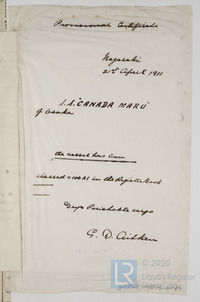 Provisional Certificate
Nagasaki
21st April 1911
S.S. "CANADA MARU"
of Osaka
the vessel has been
classed +100A1 in the Register Book
Dry & Perishable cargo
G. D. Aitken
© 2020
LR Lloyd's Register
Foundation